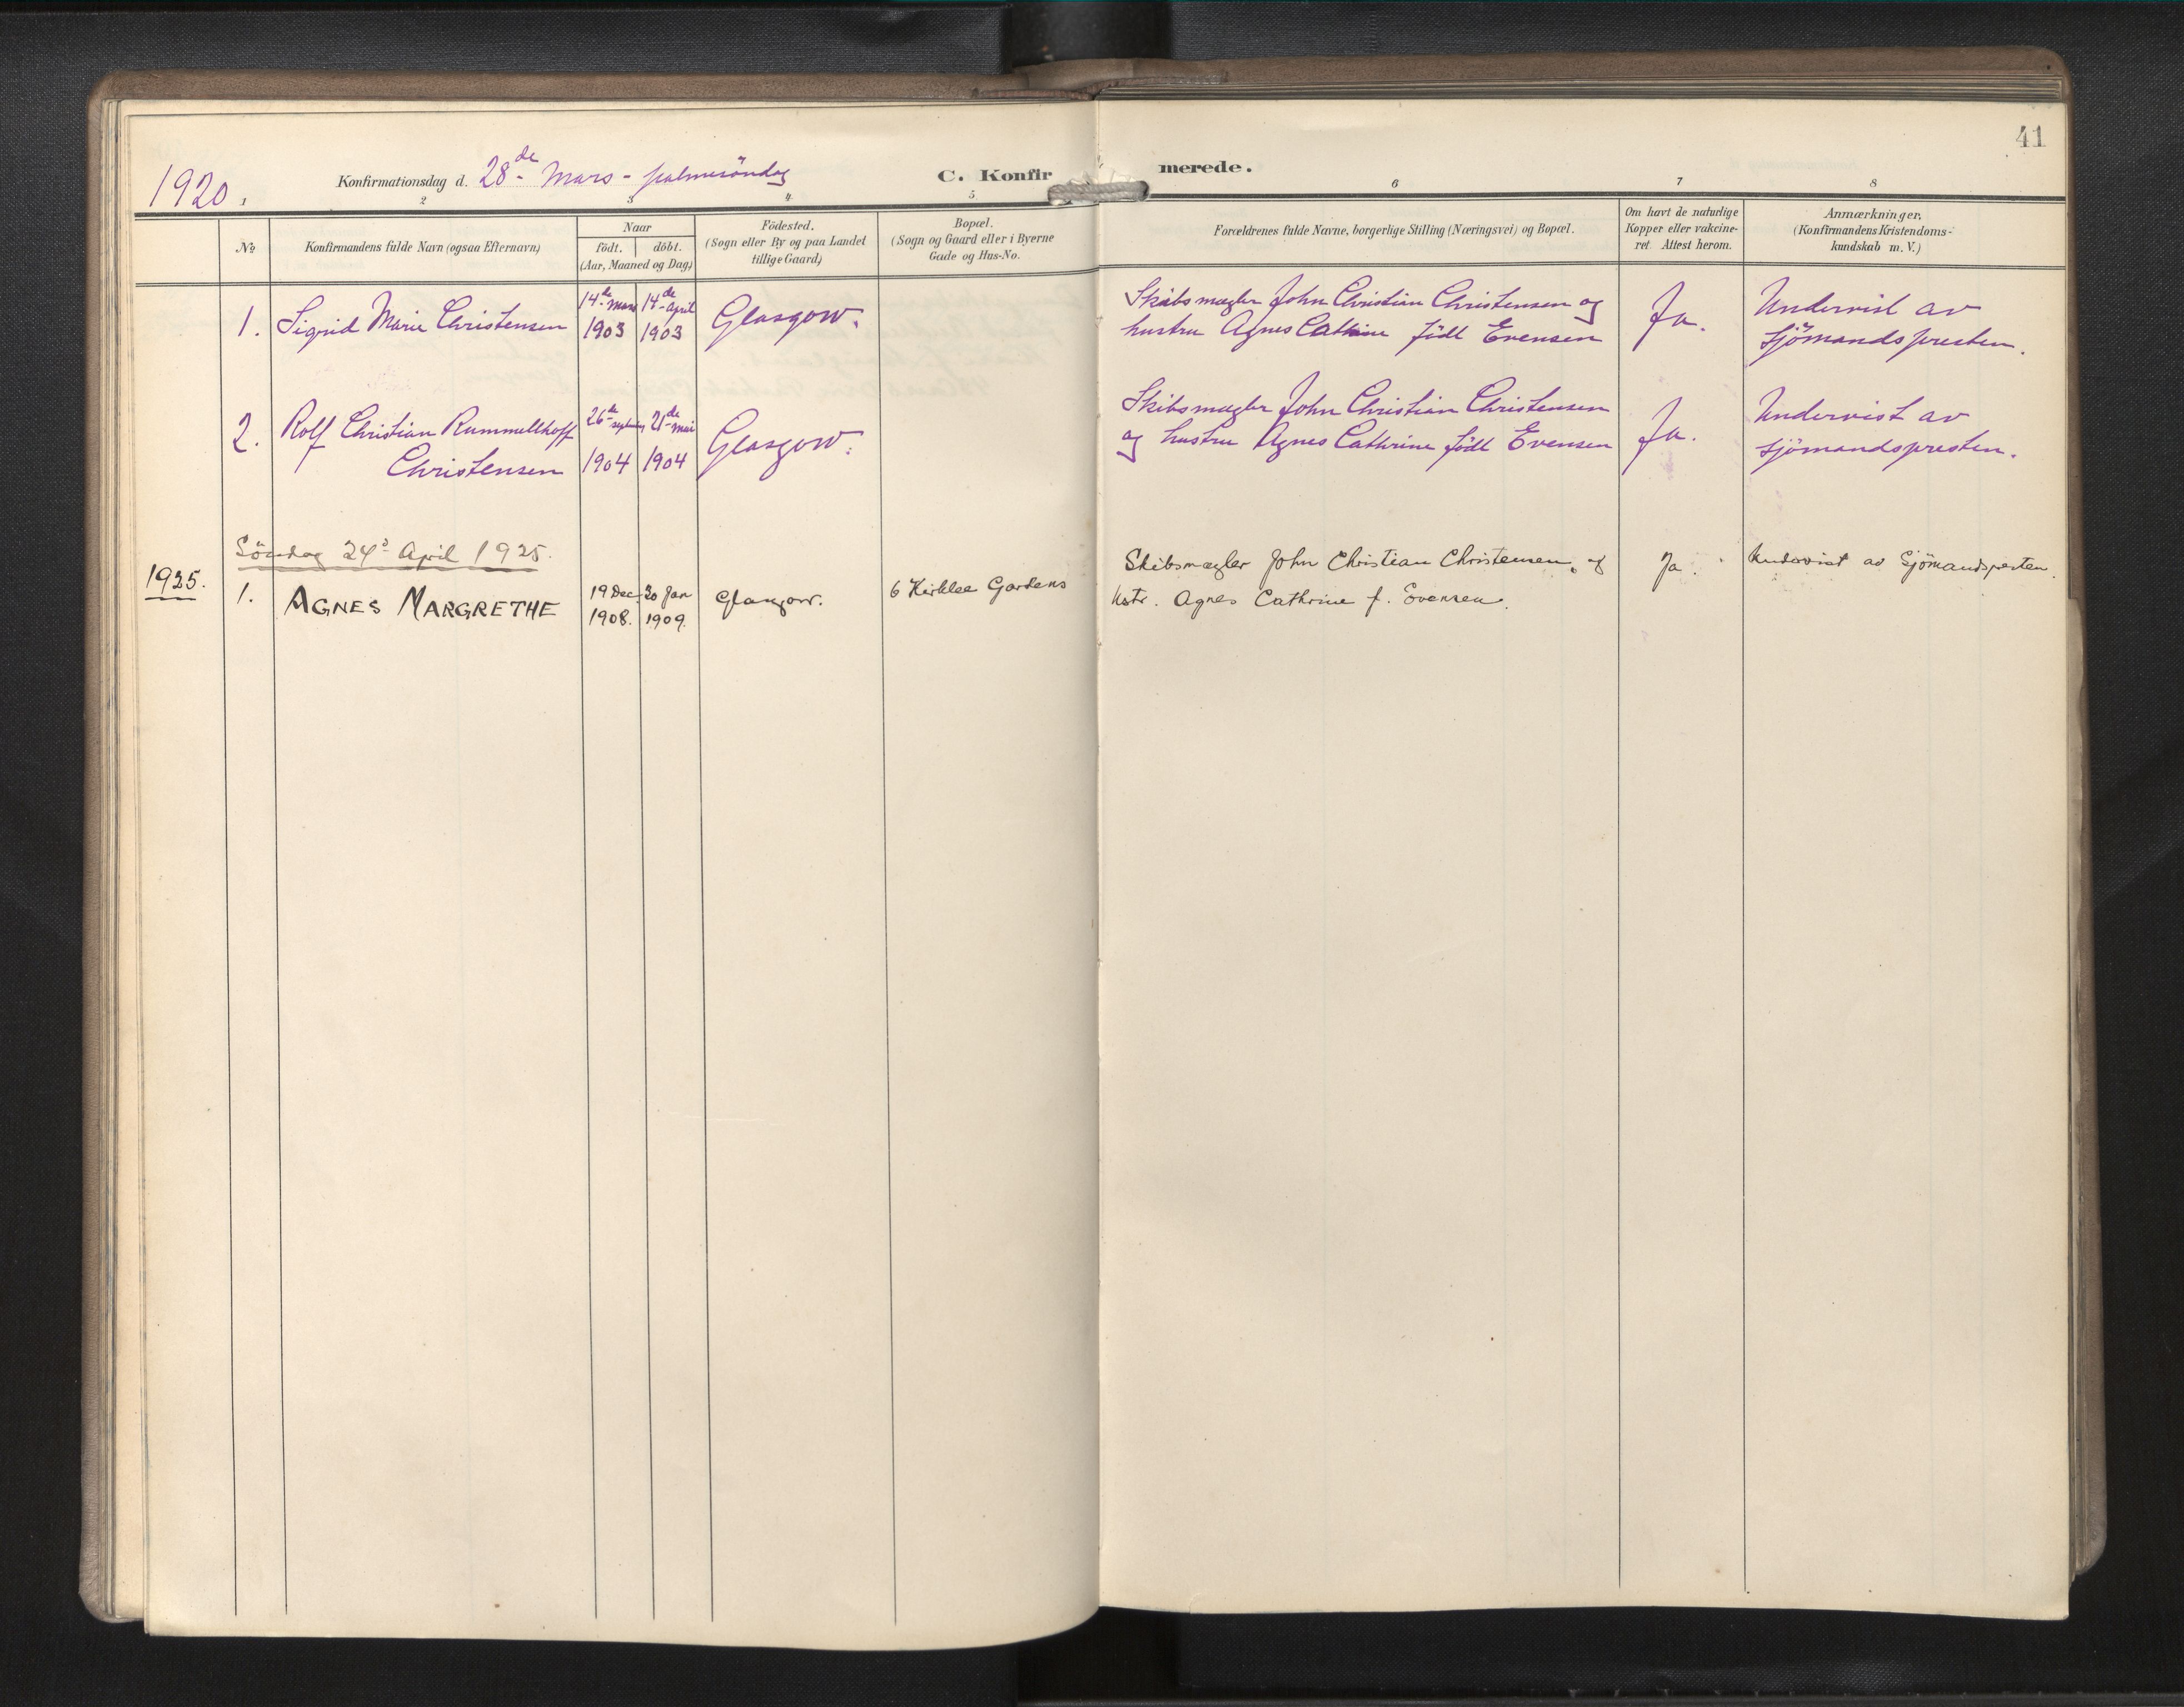 41
1920.
Konfirmationsdag d. 28de Mars - palmesöndag
C. Konfirmerede.
1 2 3 4 5 6 7 8
No
Konfirmandens fulde Navn (ogsaa Efternavn)
Naar
födt. döbt.
(Aar, Maaned og Dag)
Födested.
(Sogn eller By og paa Landet
tillige Gaard)
Bopæl.
(Sogn og Gaard eller i Byerne
Gade og Hus-No.
Forældrenes fulde Navne, borgerlige Stilling (Næringsvei) og Bopæl.
Om havt de naturlige
Kopper eller vakcine-
ret Attest herom.
Anmærkninger.
(Konfirmandens Kristendoms-
kundskab m. V.)
1. Sigrid Marie Christensen
14de Mars 1903
14de April 1903
Glasgow.
Skibsmægler John Christian Christensen og
hustru Agnes Cathrine född Evensen
Ja.
Undervist av
sjömandspresten.
2. Rolf Christian Rummelhoff
Christensen
26de septem 1904
21de mai 1904
Glasgow.
Skibsmægler John Christian Christensen
og hustru Agnes Cathrine född Evensen
Ja.
Undervist av
sjömandspresten.
Söndag 24d April 1925.
1925.
1. AGNES MARGRETHE
19 Dec. 1908.
30 Jan 1909.
Glasgow.
6 Kirklee Gardens
Skibsmægler John Christian Christensen, og
hstr. Agnes Cathrine f. Evensen.
Ja.
Undervist av Sjömandspresten.